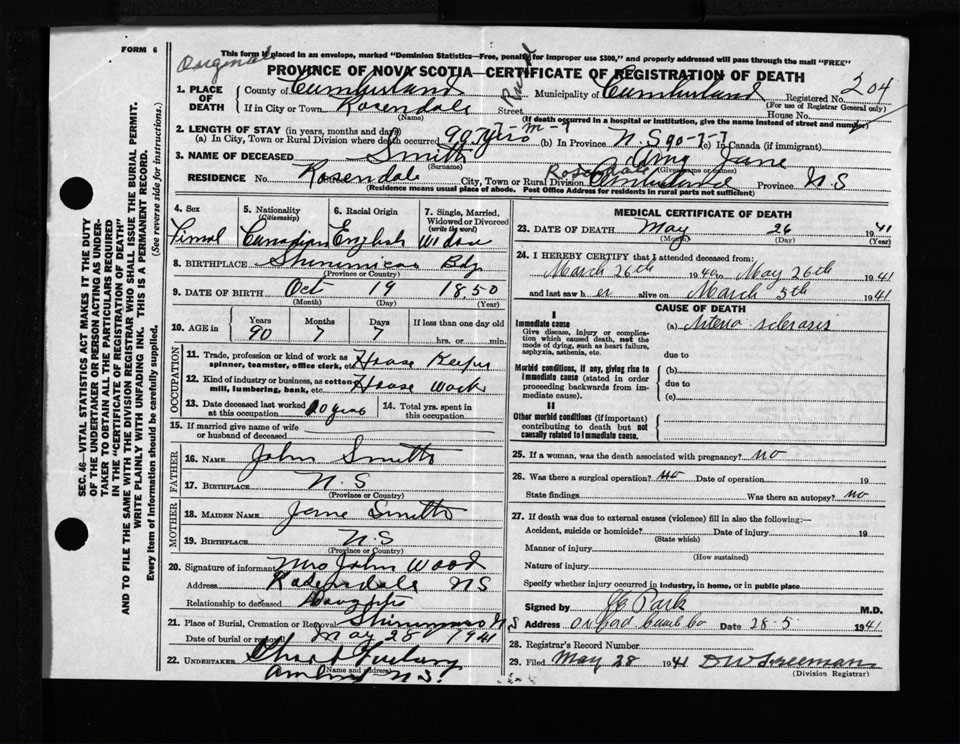 FORM 6
Original
This form is placed in an envelope, marked "Dominion Statistics—Free, penalty for improper use $300," and properly addressed will pass through the mail "FREE"
PROVINCE OF NOVA SCOTIA—CERTIFICATE OF REGISTRATION OF DEATH
1. PLACE OF DEATH
County of Cumberland Municipality of Cumberland Registered No. 204
(For use of Registrar General only)
If in City or Town Rosendale Street House No.
(Name) (If death occurred in a hospital or institution, give the name instead of street and number)
2. LENGTH OF STAY (in years, months and days)
(a) In City, Town or Rural Division where death occurred 90 yrs 7 m - 7 (b) In Province N.S 90-7-7 (c) In Canada (if immigrant)
3. NAME OF DECEASED Smith Amy Jane
(Surname) (Given name or names)
RESIDENCE No. Rosendale City, Town or Rural Division Rosendale Cumberland Province N.S
(Residence means usual place of abode. Post Office Address for residents in rural parts not sufficient)
4. Sex Fimal
5. Nationality (Citizenship) Canadian
6. Racial Origin English
7. Single, Married, Widowed or Divorced (write the word) Widow
8. BIRTHPLACE Shinimicas Bdg
(Province or Country)
9. DATE OF BIRTH Oct 19 1850
(Month) (Day) (Year)
10. AGE in Years 90 Months 7 Days 7 If less than one day old
hrs. or min.
OCCUPATION
11. Trade, profession or kind of work as spinner, teamster, office clerk, etc. House Keeper
12. Kind of industry or business, as cotton mill, lumbering, bank, etc. House Work
13. Date deceased last worked at this occupation 20 years 14. Total yrs. spent in this occupation
15. If married give name of wife or husband of deceased
FATHER
16. NAME John Smith
17. BIRTHPLACE N.S
(Province or Country)
MOTHER
18. MAIDEN NAME Jane Smith
19. BIRTHPLACE N.S
(Province or Country)
20. Signature of informant Mrs John Wood
Address Rosendale NS
Relationship to deceased Daughter
21. Place of Burial, Cremation or Removal N S
Date of burial or removal May 28 1941
22. UNDERTAKER
(Name and address)
Amherst N.S.
MEDICAL CERTIFICATE OF DEATH
23. DATE OF DEATH May 26 1941
(Month) (Day) (Year)
24. I HEREBY CERTIFY that I attended deceased from:
March 26th 1940 to May 26th 1941
and last saw her alive on March 5th 1941
CAUSE OF DEATH
I
Immediate cause
Give disease, injury or complication which caused death, not the mode of dying, such as heart failure, asphyxia, asthenia, etc.
(a) Arterio sclerosis
due to
Morbid conditions, if any, giving rise to immediate cause (stated in order proceeding backwards from immediate cause).
(b)
due to
(c)
II
Other morbid conditions (if important) contributing to death but not causally related to immediate cause.
25. If a woman, was the death associated with pregnancy? no
26. Was there a surgical operation? no Date of operation 19
State findings Was there an autopsy? no
27. If death was due to external causes (violence) fill in also the following:—
Accident, suicide or homicide? Date of injury 19
(State which)
Manner of injury
(How sustained)
Nature of injury
Specify whether injury occurred in industry, in home, or in public place
Signed by Park M.D.
Address Oxford Cumb Co Date 28-5 1941
28. Registrar's Record Number
29. Filed May 28 1941 D W Freeman
(Division Registrar)
SEC. 46—VITAL STATISTICS ACT MAKES IT THE DUTY
OF THE UNDERTAKER OR PERSON ACTING AS UNDER-
TAKER TO OBTAIN ALL THE PARTICULARS REQUIRED
IN THE "CERTIFICATE OF REGISTRATION OF DEATH"
AND TO FILE THE SAME WITH THE DIVISION REGISTRAR WHO SHALL ISSUE THE BURIAL PERMIT.
WRITE PLAINLY WITH UNFADING INK. THIS IS A PERMANENT RECORD.
Every item of Information should be carefully supplied. (See reverse side for instructions.)